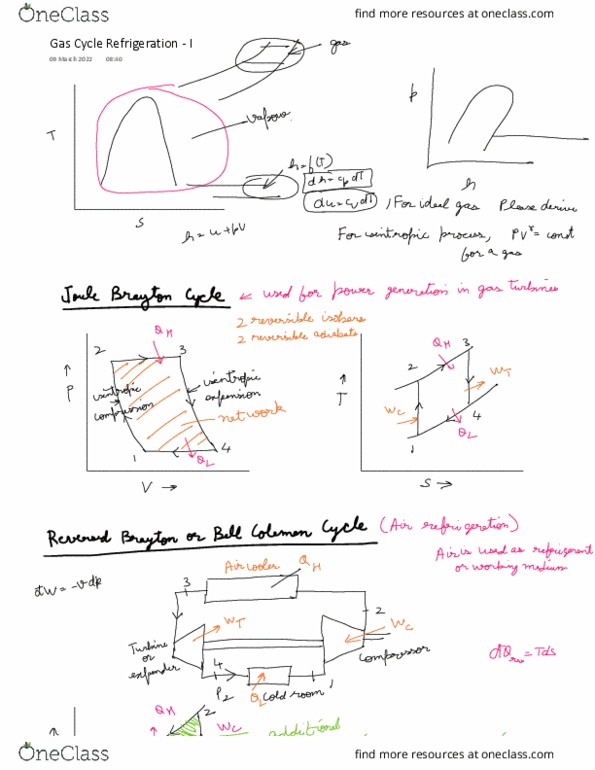 OneClass
find more resources at oneclass.com
Gas Cycle Refrigeration - I
09 March 2022 08:40
gas
T
vapour
S
h = u + pV
h = f(T)
dh = cp dT
du = cv dT
, For ideal gas Please derive
P
h
For isentropic process, PV^γ = const
for a gas
Joule Brayton Cycle ← used for power generation in gas turbines
2 reversible isobars
2 reversible adiabats
QH
2
3
↑
P
isentropic
compression
isentropic
expansion
net work
1
4
QL
V →
QH
3
2
↑
T
WT
WC
4
QL
1
S →
Reversed Brayton or Bell Coleman Cycle (Air refrigeration)
Air is used as refrigerant
or working medium
dW = -vdp
Air cooler
QH
3
2
WT
WC
Turbine
or
expander
compressor
4
1
P2
QL
cold room
dQrev = Tds
QH
2
WC
additional
OneClass
find more resources at oneclass.com